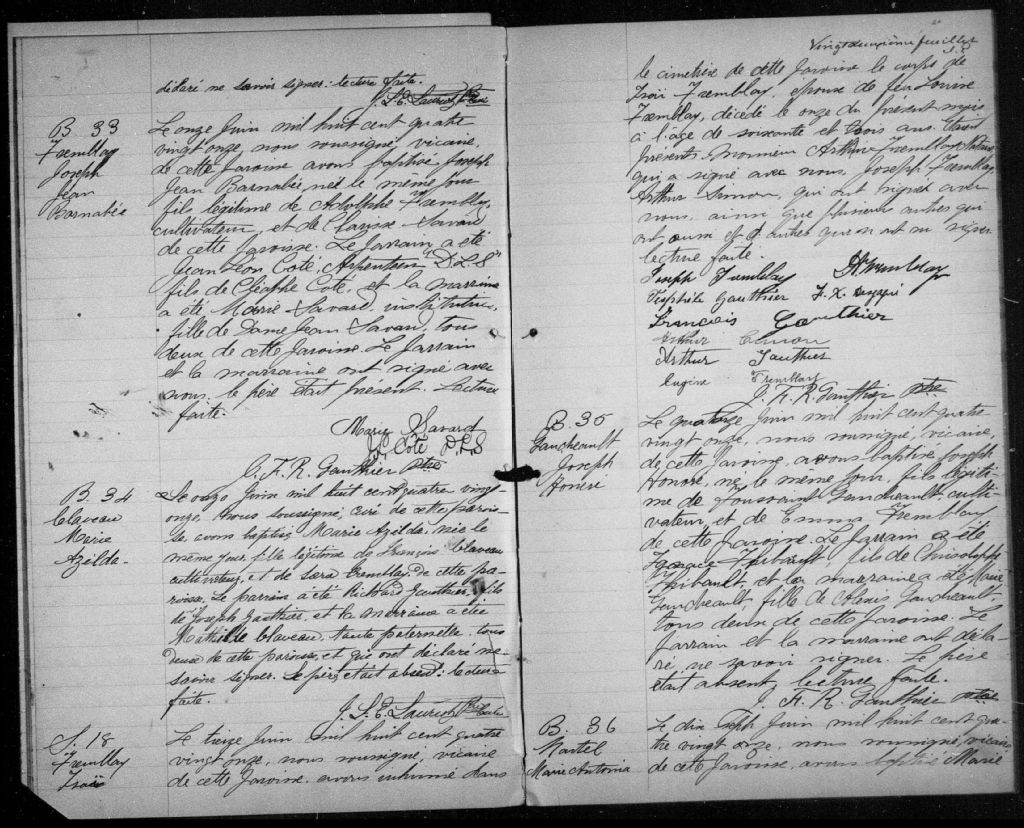 déclaré ne savoir signer: lecture faite.
J. L. E. Ptre Curé
B. 33
Tremblay
Joseph
Jean
Barnabée
Le onze Juin mil huit cent quatre
vingt onze, nous soussigné, vicaire,
de cette Paroisse avons baptisé Joseph
Jean Barnabée, né le même jour
fils légitime de Adolphe Tremblay,
cultivateur, et de Clarisse Savard,
de cette paroisse. Le parrain a été
Jean Léon Coté, Arpenteur "D.L.S"
fils de Cléophe Coté, et la marraine
a été Marie Savard, institutrice,
fille de Dame Jean Savard, tous
deux de cette Paroisse. Le parrain
et la marraine ont signé avec
nous. le père était présent. Lecture
faite.
Marie Savard
J. L. Coté D.L.S
G. F. R. Gauthier ptre
B. 34
Claveau
Marie
Azilda.
Le onze Juin mil huit cent quatre vingt
onze nous soussigné, curé de cette parois-
se avons baptisé Marie Azilda, née le
même jour, fille légitime de François Claveau
cultivateur, et de Sara Tremblay, de cette pa-
roisse. Le parrain a été Richard Gauthier, fils
de Joseph Gauthier, et la marraine a été
Mathilde Claveau, tante paternelle, tous
deux de cette paroisse, et qui ont déclaré ne
savoir signer. Le père était absent: lecture
faite.
J. L. E. Ptre Curé
S. 18
Tremblay
Le treize Juin mil huit cent quatre
vingt onze, nous soussigné, vicaire
de cette Paroisse, avons inhumé dans
Vingt deuxième feuillet
le cimetière de cette Paroisse le corps de
Tremblay, épouse de feu
Tremblay, décédé le onze du présent mois
à l'age de soixante et trois ans. Etaient
présents Monsieur Arthur Tremblay
qui a signé avec nous, Joseph Tremblay,
Arthur Simon, qui ont signé avec
nous, ainsi que plusieurs autres qui
ont aussi et d'autres qui n'ont su signer
lecture faite.
Joseph Tremblay A Tremblay
Théophile Gauthier F. X.
Francois Gauthier
Arthur Simon
Arthur Gauthier
Eugène Tremblay
J. F. R. Gauthier ptre
B. 35
Gaudreault
Joseph
Honoré
Le quatorze Juin mil huit cent quatre
vingt onze, nous soussigné, vicaire,
de cette Paroisse, avons baptisé Joseph
Honoré, né le même jour, fils légiti
me de Toussaint Gaudreault culti-
vateur, et de Emma Tremblay
de cette Paroisse. Le parrain a été
Thibault, fils de
Thibault, et la marraine a été Marie
Gaudreault, fille de Alexis Gaudreault,
tous deux de cette Paroisse. Le
parrain et la marraine ont décla-
ré ne savoir signer. Le père
était absent, lecture faite.
J. F. R. Gauthier ptre
B. 36
Martel
Marie Antonia
Le dix sept Juin mil huit cent qua
tre vingt onze, nous soussigné, vicaire
de cette Paroisse, avons baptisé Marie